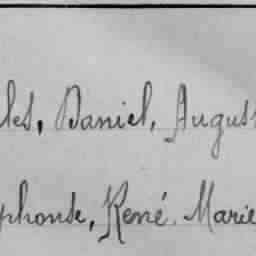 les, Daniel, Augus
phonse, René, Marie